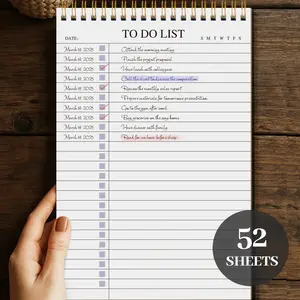 TO DO LIST
DATE: S M T W T F S
March 18, 2025 Attend the morning meeting
March 18, 2025 Finish the project proposal
March 18, 2025 Have lunch with colleagues
March 18, 2025 Call the client to discuss the cooperation
March 18, 2025 Review the monthly sales report
March 18, 2025 Prepare materials for tomorrow's presentation
March 18, 2025 Go to the gym after work
March 18, 2025 Buy groceries on the way home
March 18, 2025 Have dinner with family
March 18, 2025 Read for an hour before sleep
52
SHEETS